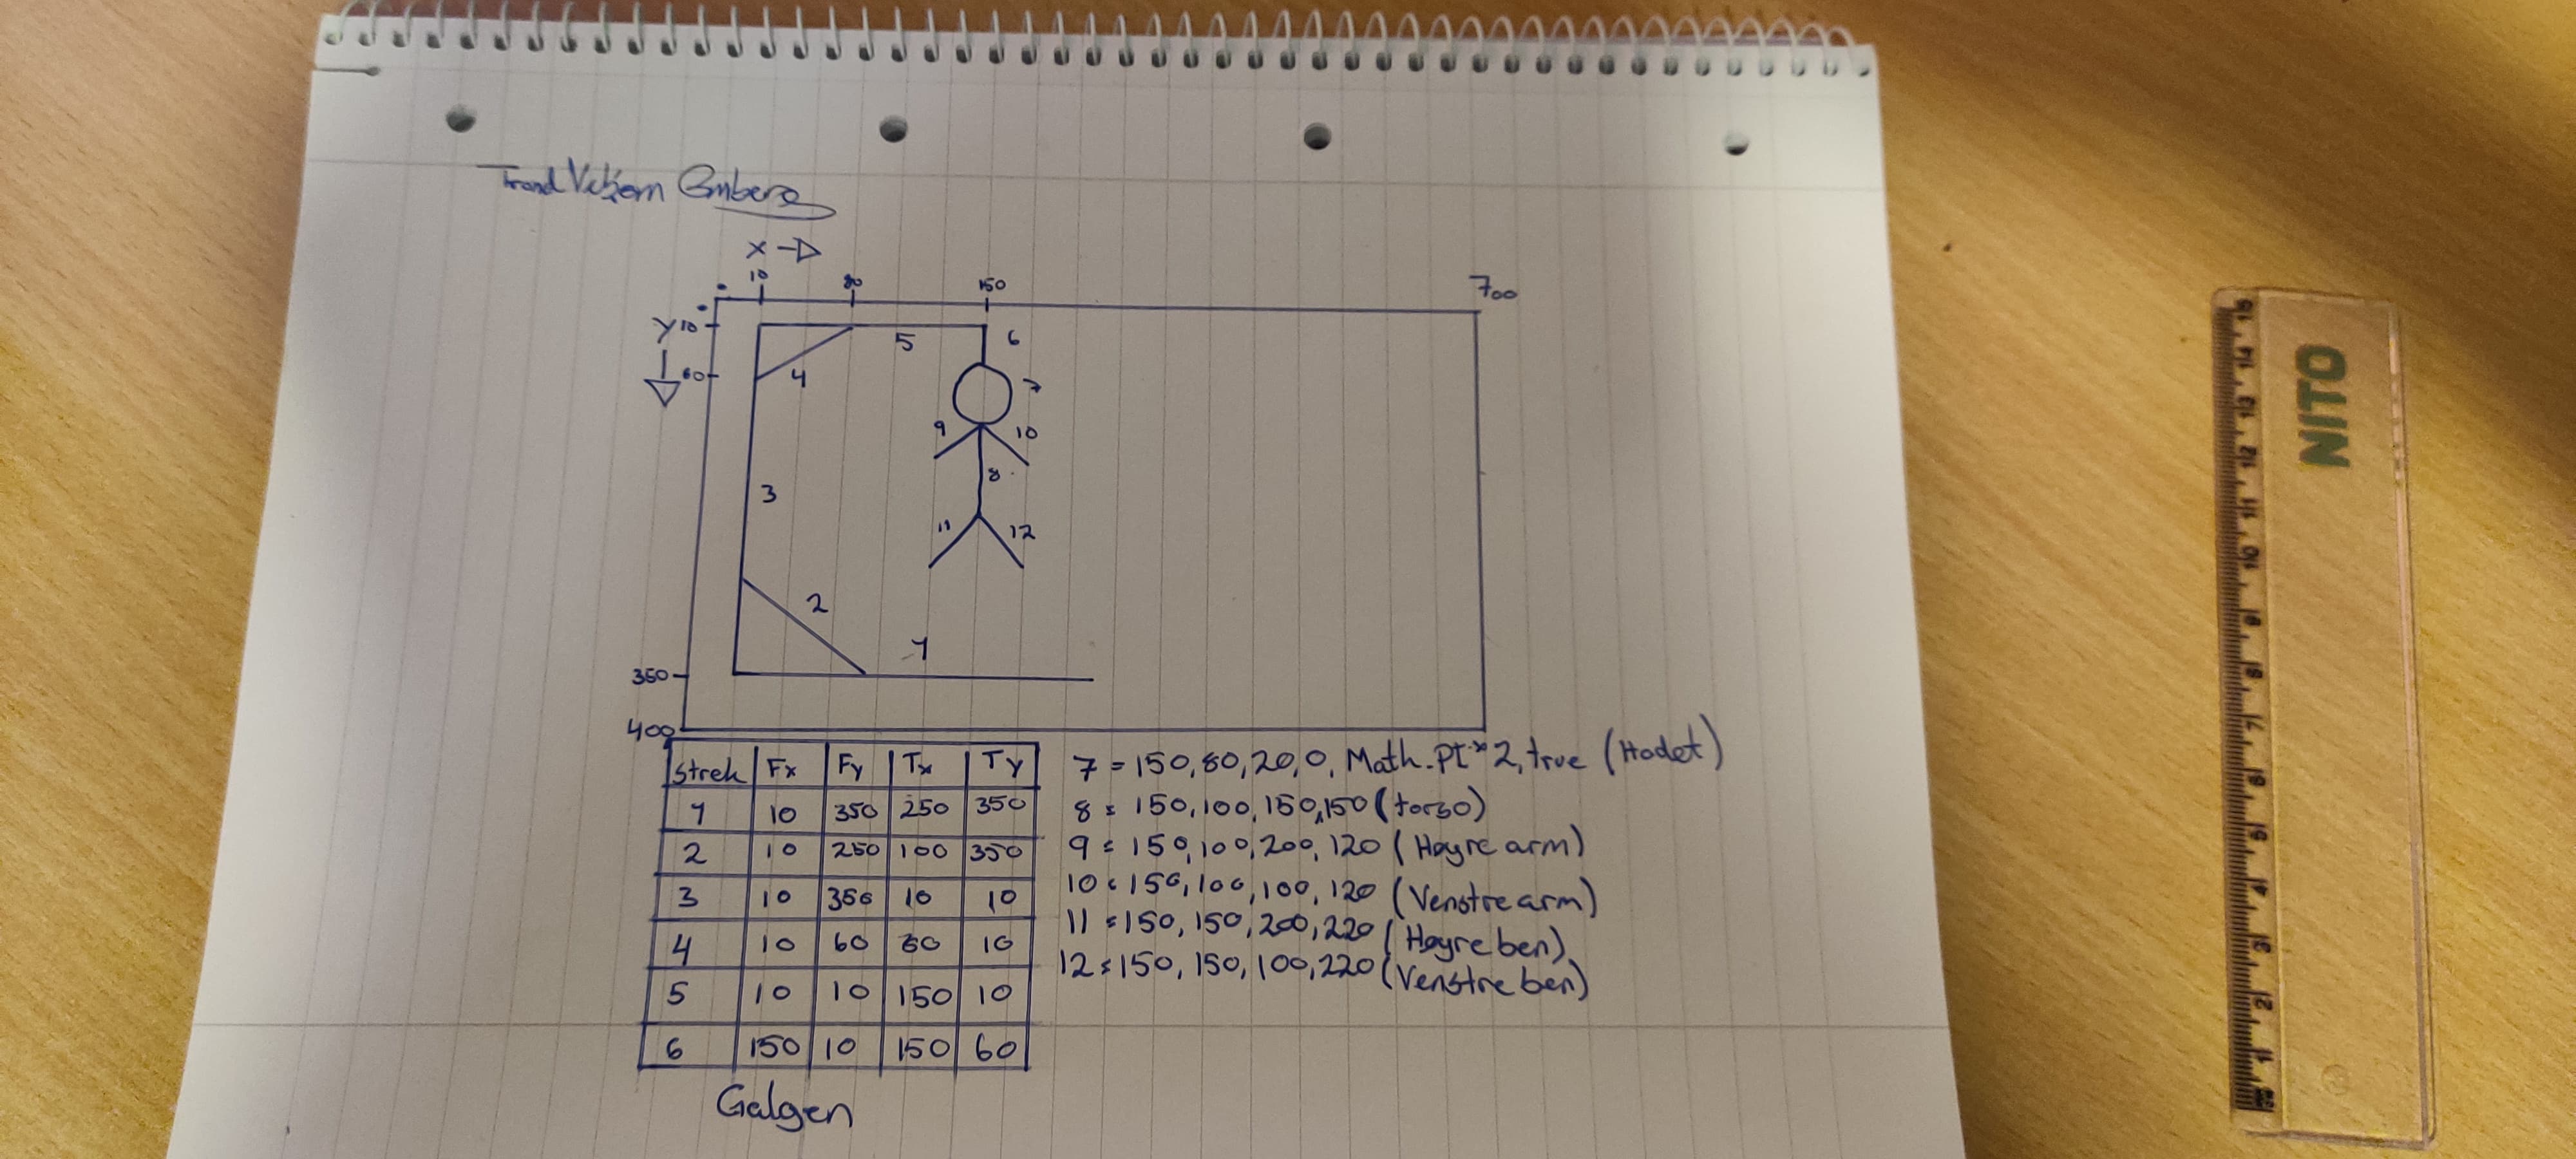 Trond
X
10 80 150 700
Y 10
60
350
400
1
2
3
4
5
6
7
8
9
10
11
12
Strek Fx Fy Tx Ty
1 10 350 250 350
2 10 250 100 350
3 10 350 10 10
4 10 60 80 10
5 10 10 150 10
6 150 10 150 60
Galgen
7 = 150, 80, 20, 0, Math.PI * 2, true (Hodet)
8 = 150, 100, 150, 150 (torso)
9 = 150, 100, 200, 120 (Høyre arm)
10 = 150, 100, 100, 120 (Venstre arm)
11 = 150, 150, 200, 220 (Høyre ben)
12 = 150, 150, 100, 220 (Venstre ben)
NITO